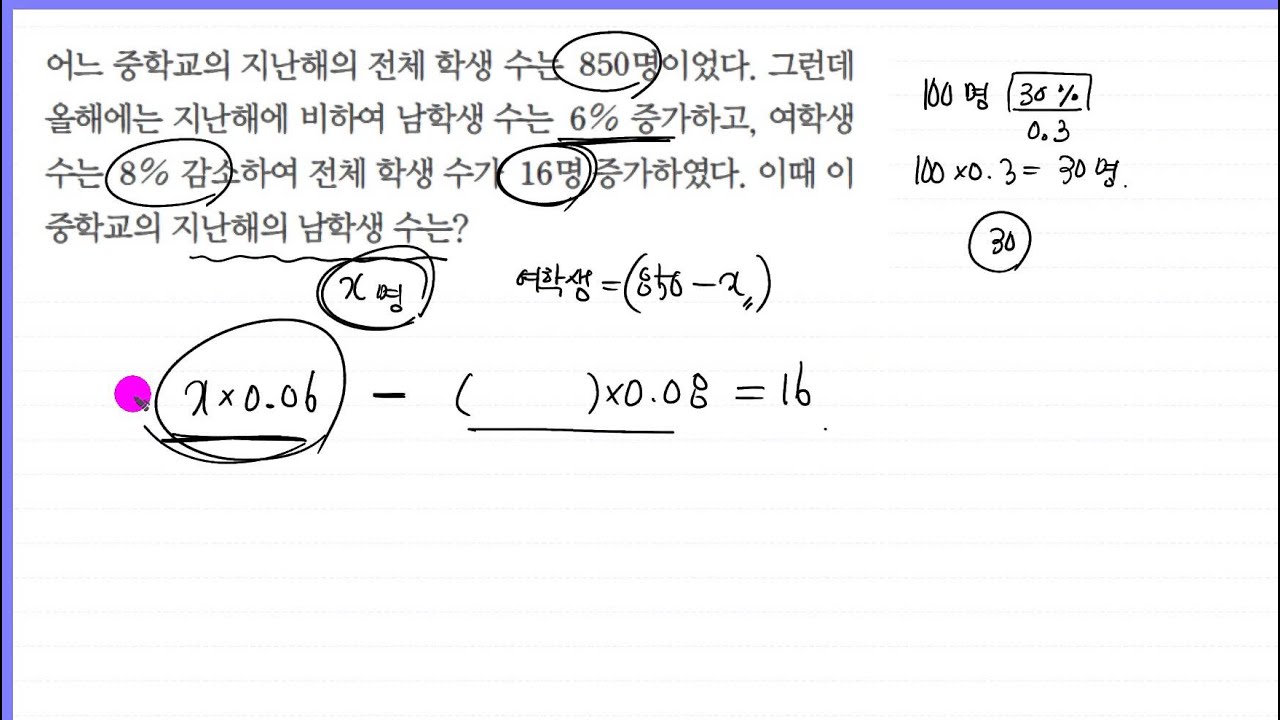 어느 중학교의 지난해의 전체 학생 수는 850명이었다. 그런데
올해에는 지난해에 비하여 남학생 수는 6% 증가하고, 여학생
수는 8% 감소하여 전체 학생 수가 16명 증가하였다. 이때 이
중학교의 지난해의 남학생 수는?
x명
여학생 = (850 - x)
x × 0.06 - ( ) × 0.08 = 16
100명 30%
0.3
100 × 0.3 = 30명.
30